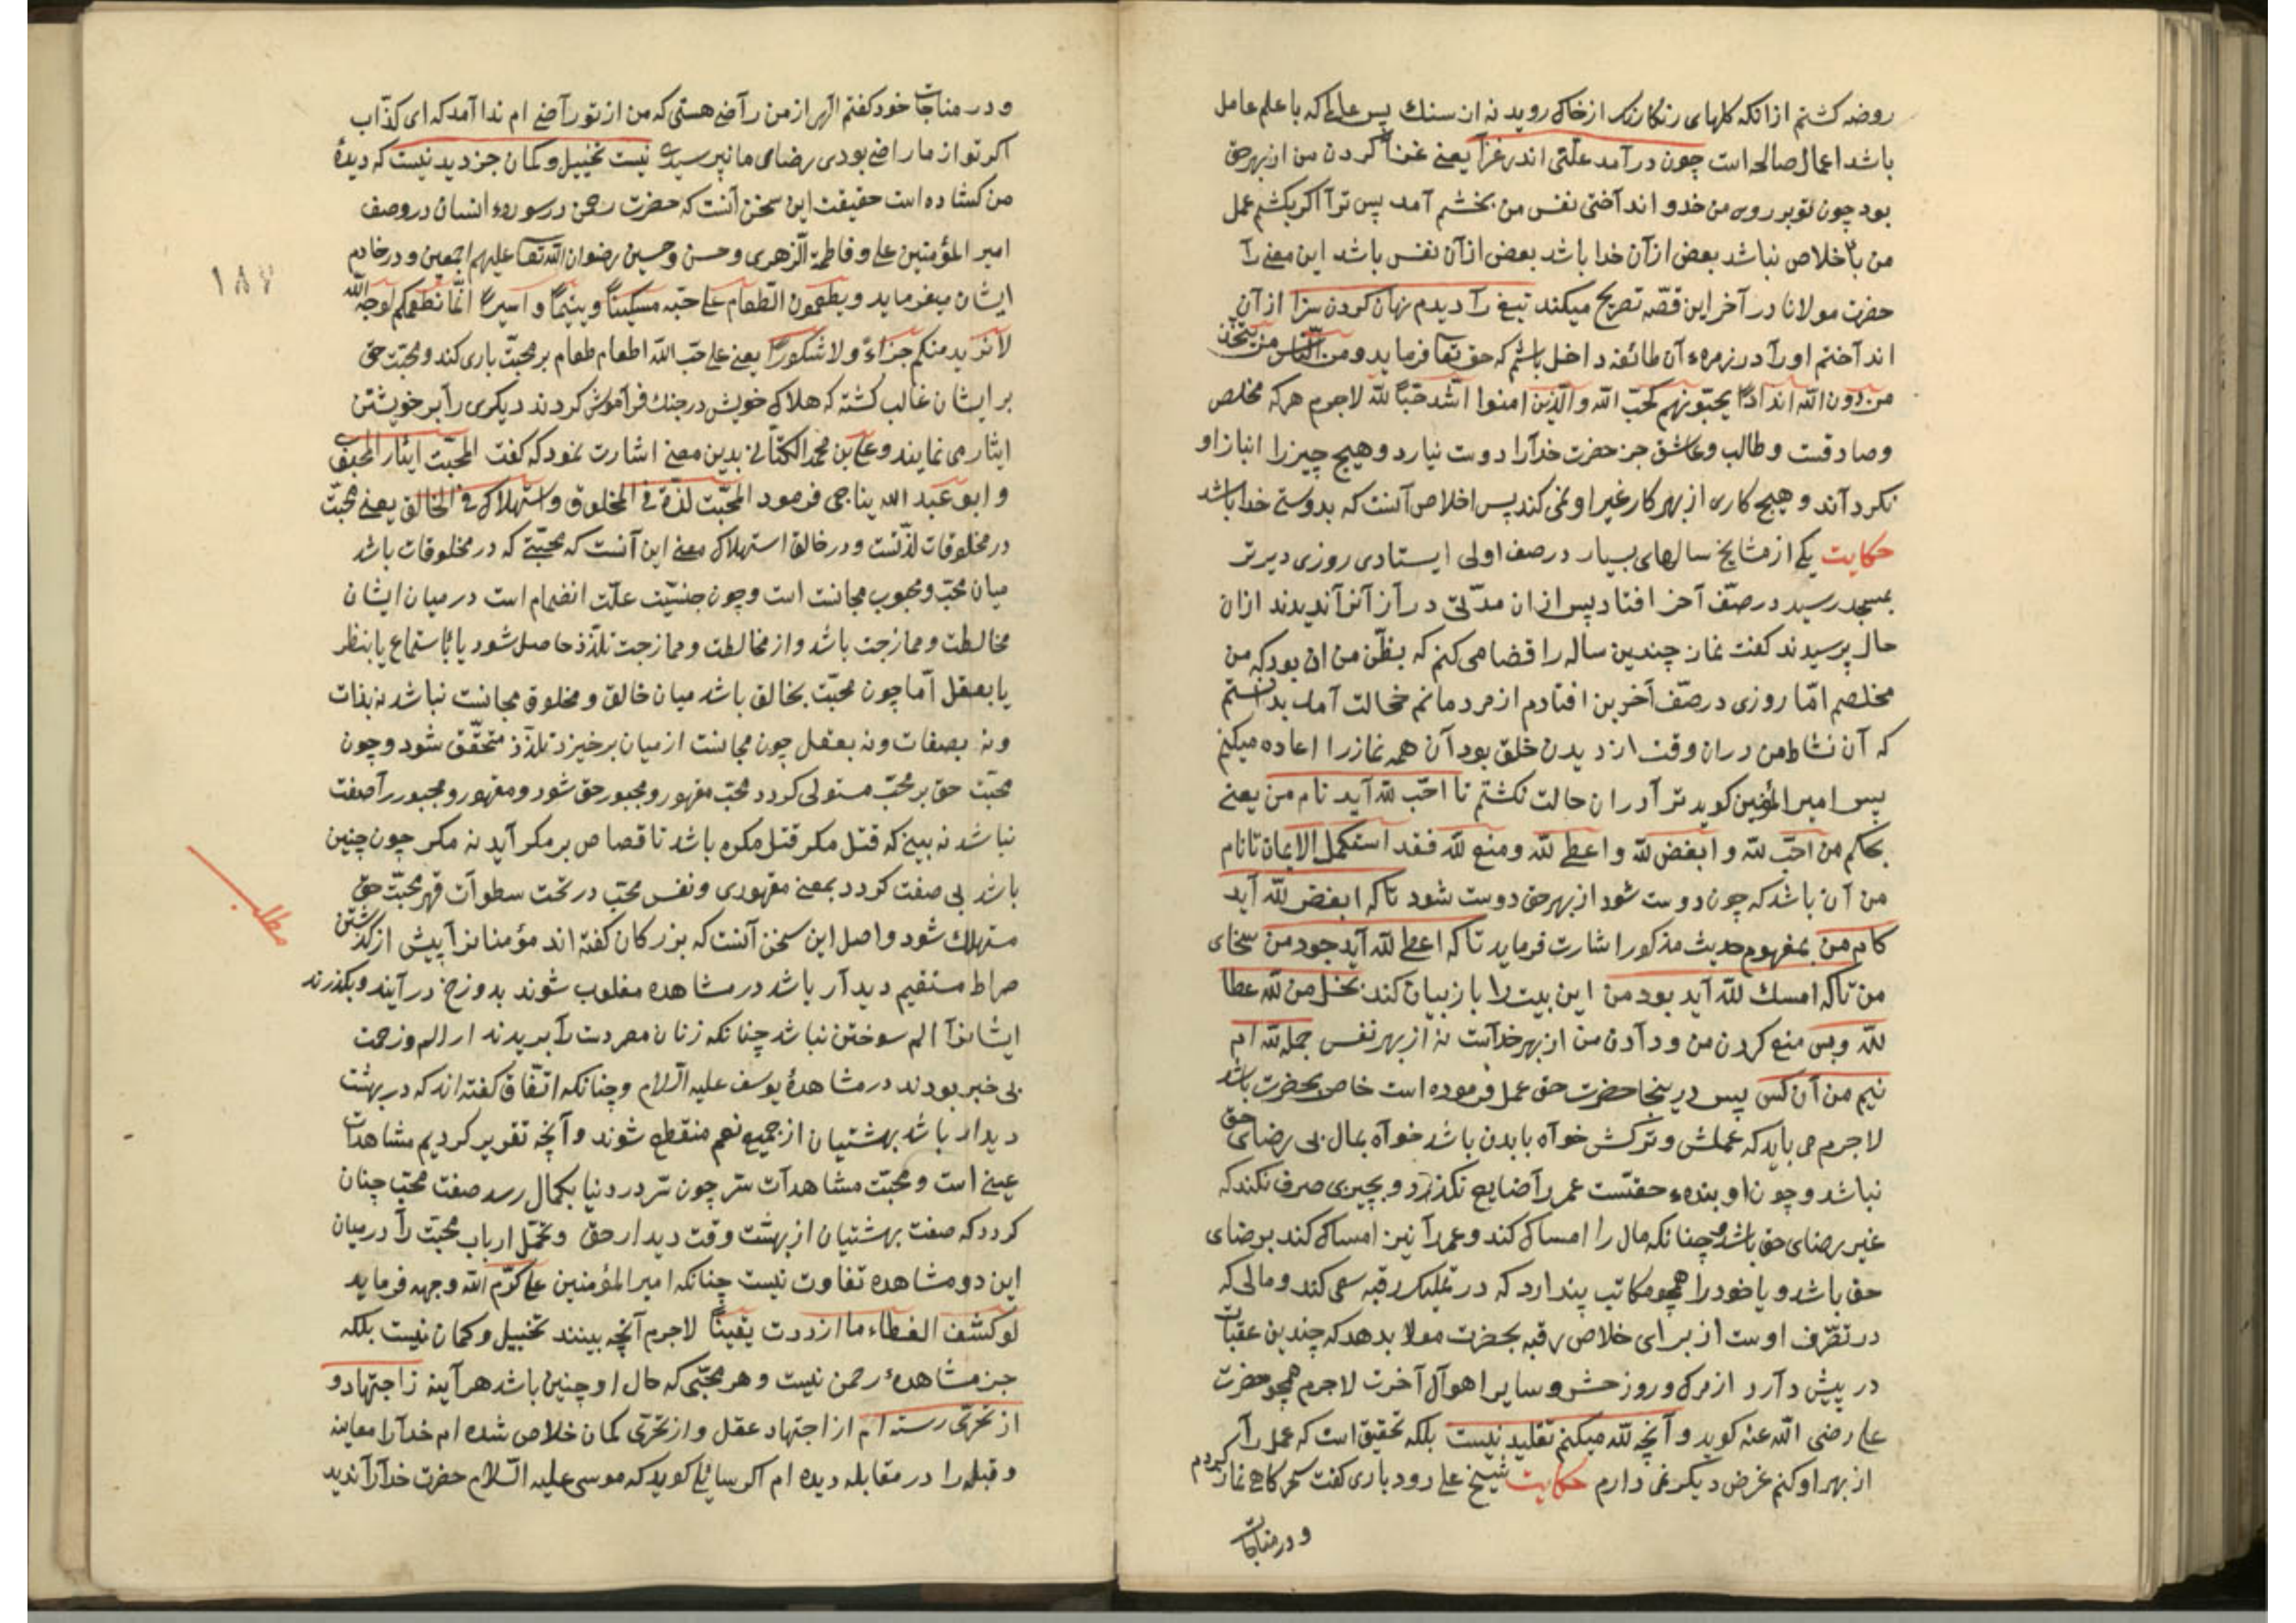 روضه کشتم ازانکه کلهای رنکارنک ازخاک روید نه ان سنك پس عالمی که با علم عامل
باشد اعمال صالحه است چون در آمد علّتی اندر غزا یعنی غزا کردن من از بهر حق
بود چون تو بر روی من خدو انداختی نفس من بخشم آمد پس ترآ اکر بکشم عمل
من باخلاص نباشد بعض از آن خدا باشد بعض از آن نفس باشد این معنی رآ
حضرت مولانا در آخر این قصّه تصریح میکند تیغ رآ دیدم نهان کردن سزا از آن
اند آختم او رآ در زمرهء آن طائفه داخل باشم که حق تعا فرماید و من النّاس من یتّخذ
من دون الله اندادًا یحبّونهم کحبّ الله والّذین امنوا اشد حبّا لله لاجرم هرکه مخلص
وصادقست و طالب و عاشق جز حضرت خدآرا دوست نیارد و هیچ چیز را انباز او
نکرد آند و هیچ کاری از بهر کار غیر او نمی کند پس اخلاص آنست که بدوستی خدا باشد
حکایت یکی از مشایخ سالهای بسیار در صف اولی ایستادی روزی دیر تر
بمسجد رسید در صفّ آخر افتاد پس از ان مدّتی در آز آنرآ ندیدند ازان
حال پرسیدند کفت نماز چندین ساله را قضا می کنم که بظنّ من ان بود که من
مخلصم امّا روزی در صفّ آخرین افتادم از مردمانم خجالت آمد بدانستم
که آن نشاط من دران وقت از دیدن خلق بود آن همه نماز را اعاده میکنم
پس امیر المؤمنین کوید ترآ دران حالت نکشتم تا احبّ لله آید نام من یعنی
بحکم من احبّ لله و ابغض لله و اعطی لله و منع لله فقد استکمل الایمان تا نام
من آن باشد که چون دوست شود از بهر حق دوست شود تا که ابغض لله آید
کام من بمفهوم حدیث مذکور اشارت فرماید تا که اعطی لله آید جود من سخای
من تا که امسك لله آید بود من این بیت را باز بیان کند بخل من لله عطا
لله و بس منع کردن من و دآدن من از بهر خدآست نه از بهر نفس جمله لله ام
نیم من آن کس پس درینجا حضرت حق عمل فرموده است خاص بحضرت باشد
لاجرم می باید که عملش و ترکش خوآه بابدن باشد خوآه بمال بی رضای حق
نباشد و چون او بندهء حقّست عمر رآ ضایع نکذارد و بچیزی صرف نکند که
غیر رضای حق باشد و چنانکه مال را امساک کند و عمر رآ نیز امساک کند بر ضای
حق باشد و یا خود را همچو مکاتب پندارد که در تملیک رقبه سعی کند و مالی که
در تصّرف اوست از برای خلاص رقبه بحضرت مولا بدهد که چندین عقبات
در پیش دآرد از مرک و روز حشر و سایر اهوآل آخرت لاجرم همچو حضرت
علی رضی الله عنه کوید و آنچه لله میکنم تقلید نیست بلکه تحقیق است که عمل رآ
از بهر او کنم غرض دیکر نمی دارم حکایت شیخ علی رودباری کفت سحر کاهی نماز کردم
و در مناجات
و در مناجات خود کفتم الهی از من رآضی هستی که من از تو رآضی ام ندا آمد که ای کذّاب
اکر تو از ما راضی بودی رضای ما نپرسیدی نیست تخییل و کمان جز دید نیست که دیدهٔ
من کشاده است حقیقت این سخن آنست که حضرت رحمن در سورهء انسان در وصف
امیر المؤمنین علی و فاطمة الزّهری و حسن و حسین رضوان الله تعا علیهم اجمعین و در خادم
١٨٧
ایشان میفرماید و یطعمون الطّعام علی حبّه مسکینًا و یتیمًا و اسیرًا انّما نطعمکم لوجه الله
لا نرید منکم جزآءً ولا شکورًا یعنی علی حبّ الله اطعام طعام بر محبّت باری کند و محبّت حق
بر ایشان غالب کشته که هلاک خویش در جنك فرآموش کردند دیکری رآ بر خویشتن
ایثار می نمایند و علی بن محمد الکتّانی بدین معنی اشارت نمود که کفت المحبّت ایثار المحبوب
و ابو عبد الله یناجی فرمود المحبّت لذّة فی المخلوق و استهلاک فی الخالق یعنی محبّت
در مخلوقات لذّتست و در خالق استهلاک معنی این آنست که محبّتی که در مخلوقات باشد
میان محبّ و محبوب مجانست است و چون جنسیّت علّت انضمام است در میان ایشان
مخالطت و ممازجت باشد و از مخالطت و ممازجت تلذّذ حاصل شود یا باستماع یا بنظر
یا بعقل امّا چون محبّت بخالق باشد میان خالق و مخلوق مجانست نباشد نه بذات
و نه بصفات و نه بعقل چون مجانست از میان برخیزد تلذّذ متحقّق شود و چون
محبّت حق بر محبّ مستولی کردد محبّ مقهور و مجبور حق شود و مقهور و مجبور رآ صفت
نباشد نه بینی که قتل مکره قتل مکره باشد تا قصاص بر مکره آید نه مکره چون چنین
باشد بی صفت کردد بمعنی مقهوری و نفس محبّ در تحت سطوات قهر محبّت حق
مطلب
مستهلك شود و اصل این سخن آنست که بزرکان کفته اند مؤمنانرا پیش از کذشتن
صراط مستقیم دیدآر باشد در مشاهده مغلوب شوند بدوزخ در آیند و بکذرند
ایشانرآ الم سوختن نباشد چنانکه زنان مصر دست رآ بریدند از الم و زحمت
بی خبر بودند در مشاهدهٔ یوسف علیه السّلام و چنانکه اتّفاق کفته اند که در بهشت
دیدار باشد بهشتیان از جمیع نعم منقطع شوند و آنچه تقریر کردیم مشاهدات
عینی است و محبّت مشاهدآت سرّ چون سرّ در دنیا بکمال رسد صفت محبّ چنان
کردد که صفت بهشتیان از بهشت وقت دیدار حق و تحمّل ارباب محبّت رآ در میان
این دو مشاهده تفاوت نیست چنانکه امیر المؤمنین علی کرّم الله وجهه فرماید
لو کشف الغطاء ما ازددت یقینًا لاجرم آنچه بینند تخییل و کمان نیست بلکه
جز مشاهدهٔ رحمن نیست و هر محبّی که حال او چنین باشد هرآینه زاجتهاد و
از تحرّی رسته ام از اجتهاد عقل و از تحرّی کمان خلاص شده ام خدآرا معاینه
و قبله را در مقابله دیده ام اکر سائلی کوید که موسی علیه السّلام حضرت خدآرآ ندید